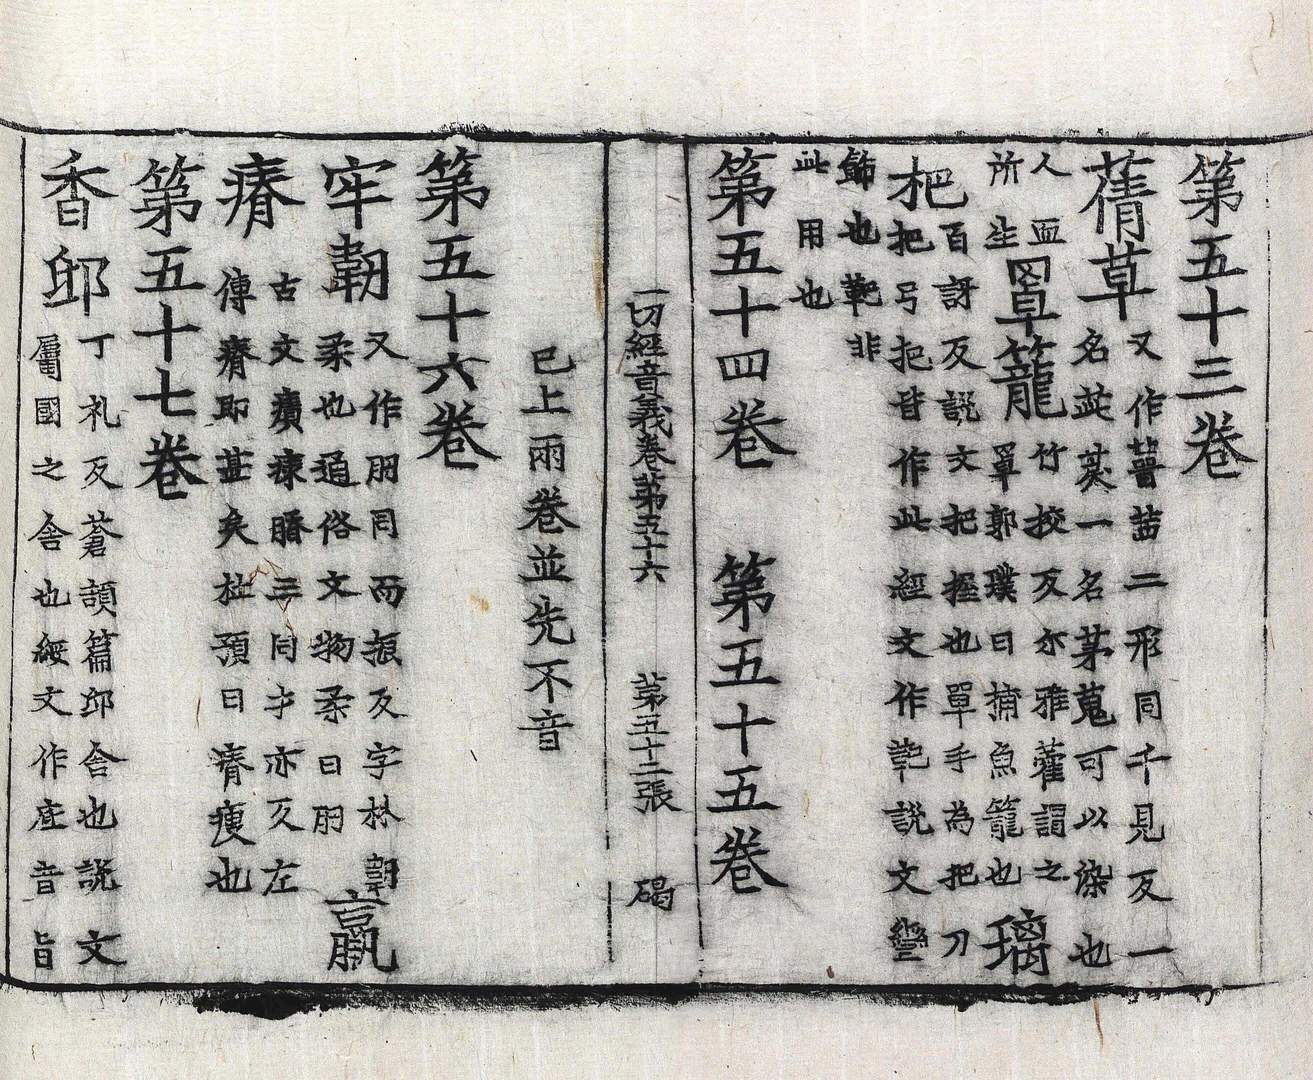 第五十三卷
蒨草又作蒨茜二形同千見反一
名茈䓞一名茅蒐可以染也
人血
所生
罩籠竹挍反尒雅籗謂之
罩郭璞曰捕魚籠也
璃
杷百訝反説文把握也單手為把刀
把弓把皆作此經文作䩗説文轡
飾也䩗非
此用也
第五十四卷 第五十五卷
一切經音義卷第五十六 第五十二張 碣
已上兩卷並先不音
第五十六卷
牢韌又作肕同而振反字林韌
柔也通俗文物柔曰肕
羸
瘠古文癠㾊膌三同才亦反左
傳瘠即甚矣杜預曰瘠瘦也
第五十七卷
香邸丁礼反蒼頡篇邸舍也説文
屬國之舍也經文作㡳音旨